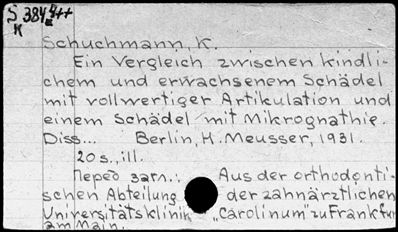 S 384
K
Schuchmann, K.
Ein Vergleich zwischen kindli-
chem und erwachsenem Schädel
mit vollwertiger Artikulation und
einem Schädel mit Mikrognathie.
Diss... Berlin, H. Meusser, 1931.
20 s., ill.
Перед загл.: Aus der orthodonti-
schen Abteilung der zahnärztlichen
Universitätsklinik "Carolinum" zu Frankfurt
am Main.